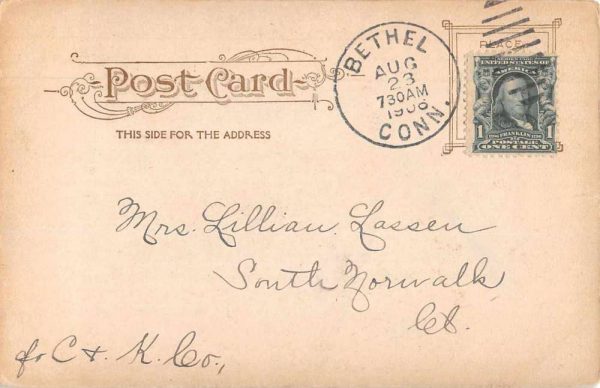 Post Card
THIS SIDE FOR THE ADDRESS
BETHEL
AUG
23
730AM
1906
CONN.
PLACE
UNITED STATES OF
AMERICA
1 FRANKLIN 1
POSTAGE
ONE CENT
Mrs. Lillian Lassen
South Norwalk
Ct.
℅ C & K. Co.,